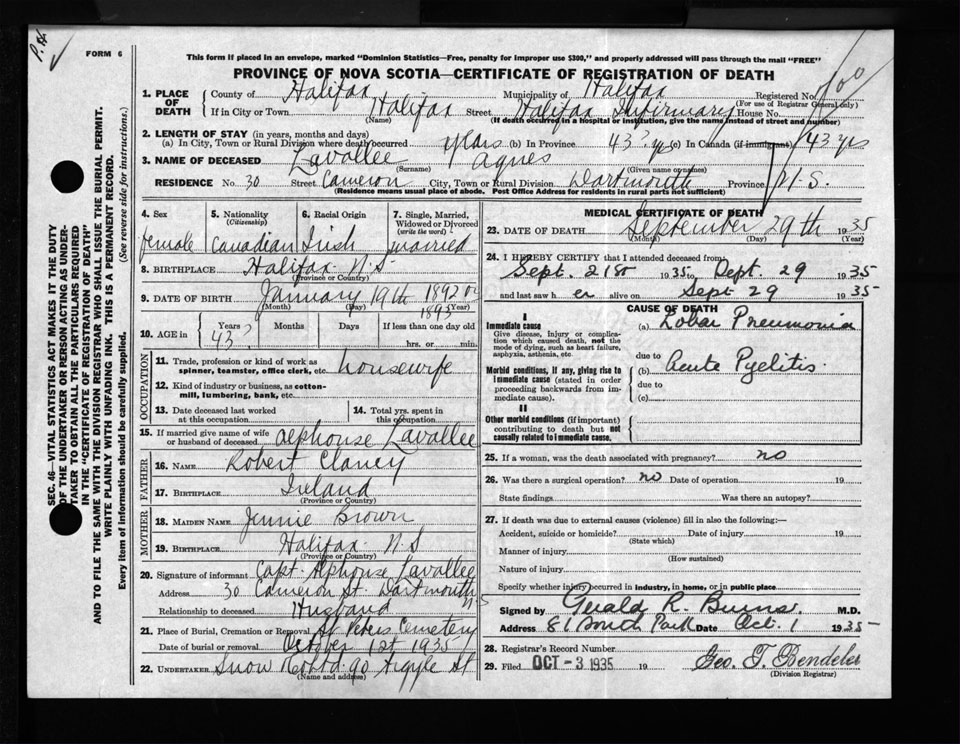 P.H.
FORM 6
This form if placed in an envelope, marked "Dominion Statistics—Free, penalty for improper use $300," and properly addressed will pass through the mail "FREE"
PROVINCE OF NOVA SCOTIA—CERTIFICATE OF REGISTRATION OF DEATH
1. PLACE OF DEATH County of Halifax Municipality of Halifax Registered No. 100
(For use of Registrar General only)
If in City or Town Halifax Street Halifax Infirmary House No.
(Name) (If death occurred in a hospital or institution, give the name instead of street and number)
2. LENGTH OF STAY (in years, months and days)
(a) In City, Town or Rural Division where death occurred years (b) in Province 43? yrs (c) In Canada (if immigrant) 43 yrs
3. NAME OF DECEASED Lavallee Agnes
(Surname) (Given name or names)
RESIDENCE No. 30 Street Cameron City, Town or Rural Division Dartmouth Province N.S.
(Residence means usual place of abode. Post Office Address for residents in rural parts not sufficient)
4. Sex female
5. Nationality (Citizenship) Canadian
6. Racial Origin Irish
7. Single, Married, Widowed or Divorced (write the word) married
8. BIRTHPLACE Halifax N.S
(Province or Country)
9. DATE OF BIRTH January 19th 1892 or 1893
(Month) (Day) (Year)
10. AGE in Years 43? Months Days If less than one day old hrs. or min.
OCCUPATION
11. Trade, profession or kind of work as spinner, teamster, office clerk, etc. housewife
12. Kind of industry or business, as cotton-mill, lumbering, bank, etc.
13. Date deceased last worked at this occupation
14. Total yrs. spent in this occupation
15. If married give name of wife or husband of deceased Alphonse Lavallee
FATHER
16. NAME Robert Clancy
17. BIRTHPLACE Ireland
(Province or Country)
MOTHER
18. MAIDEN NAME Jennie Brown
19. BIRTHPLACE Halifax N.S
(Province or Country)
20. Signature of informant Capt. Alphonse Lavallee
Address 30 Cameron St. Dartmouth N.S
Relationship to deceased Husband
21. Place of Burial, Cremation or Removal St Peters Cemetery
Date of burial or removal October 1st 1935
22. UNDERTAKER Snow & Co Ltd. 90 Argyle St
(Name and address)
MEDICAL CERTIFICATE OF DEATH
23. DATE OF DEATH September 29th 1935
(Month) (Day) (Year)
24. I HEREBY CERTIFY that I attended deceased from
Sept. 21st 1935 to Sept. 29 1935
and last saw her alive on Sept 29 1935
CAUSE OF DEATH
I
Immediate cause
Give disease, injury or complication which caused death, not the mode of dying, such as heart failure, asphyxia, asthenia, etc.
(a) Lobar Pneumonia
due to
Morbid conditions, if any, giving rise to immediate cause (stated in order proceeding backwards from immediate cause).
(b) Acute Pyelitis
due to
(c)
II
Other morbid conditions (if important) contributing to death but not causally related to immediate cause.
25. If a woman, was the death associated with pregnancy? no
26. Was there a surgical operation? no Date of operation 19
State findings Was there an autopsy?
27. If death was due to external causes (violence) fill in also the following:—
Accident, suicide or homicide? Date of injury 19
(State which)
Manner of injury
(How sustained)
Nature of injury
Specify whether injury occurred in industry, in home, or in public place
Signed by Gerald R. Burns M.D.
Address 81 South Park Date Oct. 1 1935
28. Registrar's Record Number
29. Filed OCT - 3 1935 19 Geo. T. Bendeler
(Division Registrar)
SEC. 46—VITAL STATISTICS ACT MAKES IT THE DUTY
OF THE UNDERTAKER OR PERSON ACTING AS UNDER-
TAKER TO OBTAIN ALL THE PARTICULARS REQUIRED
IN THE "CERTIFICATE OF REGISTRATION OF DEATH"
AND TO FILE THE SAME WITH THE DIVISION REGISTRAR WHO SHALL ISSUE THE BURIAL PERMIT.
WRITE PLAINLY WITH UNFADING INK. THIS IS A PERMANENT RECORD.
Every item of information should be carefully supplied. (See reverse side for instructions.)